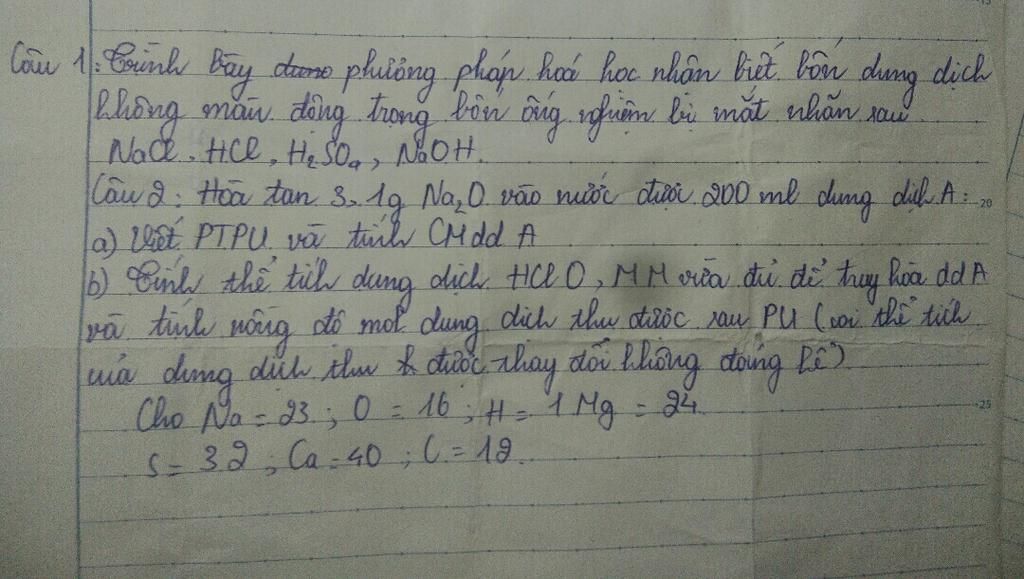 Câu 1: Trình bày phương pháp hoá học nhận biết bốn dung dịch
không màu đông trong bốn ống nghiệm bị mất nhãn sau
NaCl, HCl, H₂SO₄, NaOH.
Câu 2: Hòa tan 3,1g Na₂O vào nước được 200 ml dung dịch A:
a) Viết PTPU và tính CMdd A
b) Tính thể tích dung dịch HCl O, MM vừa đủ để truy hòa dd A
và tính nồng độ mol dung dịch thu được sau PU (coi thể tích
của dung dịch thu được thay đổi không đáng kể)
Cho Na = 23; O = 16; H = 1 Mg = 24
S = 32; Ca = 40; C = 12.